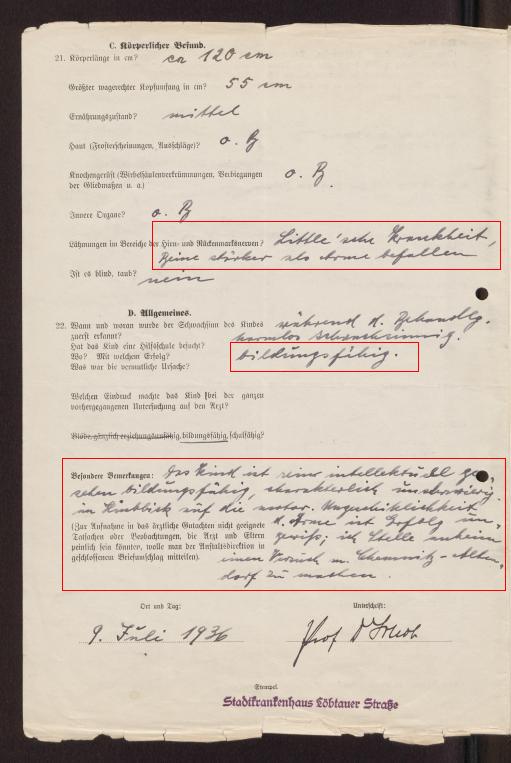 C. Körperlicher Befund.
21. Körperlänge in cm? ca 120 cm
Größter wagerechter Kopfumfang in cm? 55 cm
Ernährungszustand? mittel
Haut (Frosterscheinungen, Ausschläge)? o. B
Knochengerüst (Wirbelsäulenverkrümmungen, Verbiegungen
der Gliedmaßen u. a.) o. B.
Innere Organe? o. B
Lähmungen im Bereiche der Hirn- und Rückenmarksnerven? Little'sche Krankheit,
Beine stärker als Arme befallen
Ist es blind, taub? nein
D. Allgemeines.
22. Wann und woran wurde der Schwachsinn des Kindes während d. Behandlg.
zuerst erkannt? harmlos schwachsinnig.
Hat das Kind eine Hilfsschule besucht?
Wo? Mit welchem Erfolg? bildungsfähig.
Was war die vermutliche Ursache?
Welchen Eindruck machte das Kind bei der ganzen
vorhergegangenen Untersuchung auf den Arzt?
Blöde, gänzlich erziehungsunfähig, bildungsfähig, schulfähig?
Besondere Bemerkungen: Das Kind ist rein intellektuell ge-
sehen bildungsfähig, charakterlich
im Hinblick auf die motor. Ungeschicklichkeit
(Zur Aufnahme in das ärztliche Gutachten nicht geeignete d. Arme ist Erfolg un-
Tatsachen oder Beobachtungen, die Arzt und Eltern gewiß; ich stelle anheim
peinlich sein könnten, wolle man der Anstaltsdirektion in einen Versuch m. Chemnitz-Alten-
geschlossenem Briefumschlag mitteilen). dorf zu machen.
Ort und Tag: Unterschrift:
9. Juli 1936 Prof Dr
Stempel.
Stadtkrankenhaus Löbtauer Straße